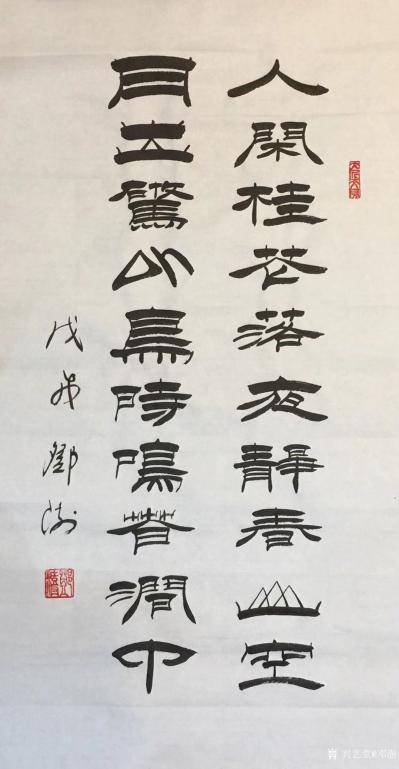 人閑桂花落夜靜春山空
月出驚山鳥時鳴春澗中
戊戌鄧